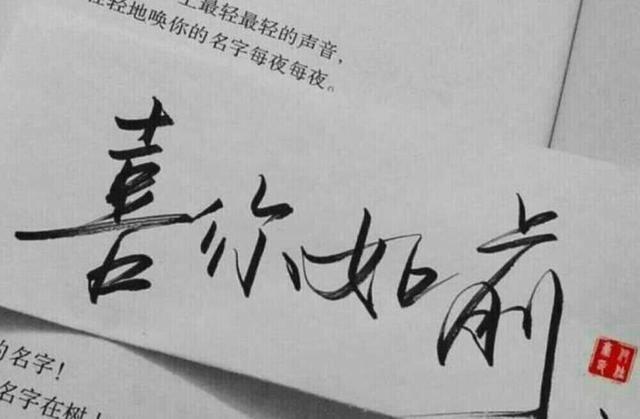 上最轻最轻的声音，
轻轻地唤你的名字每夜每夜。
喜你如前
的名字！
名字在树上